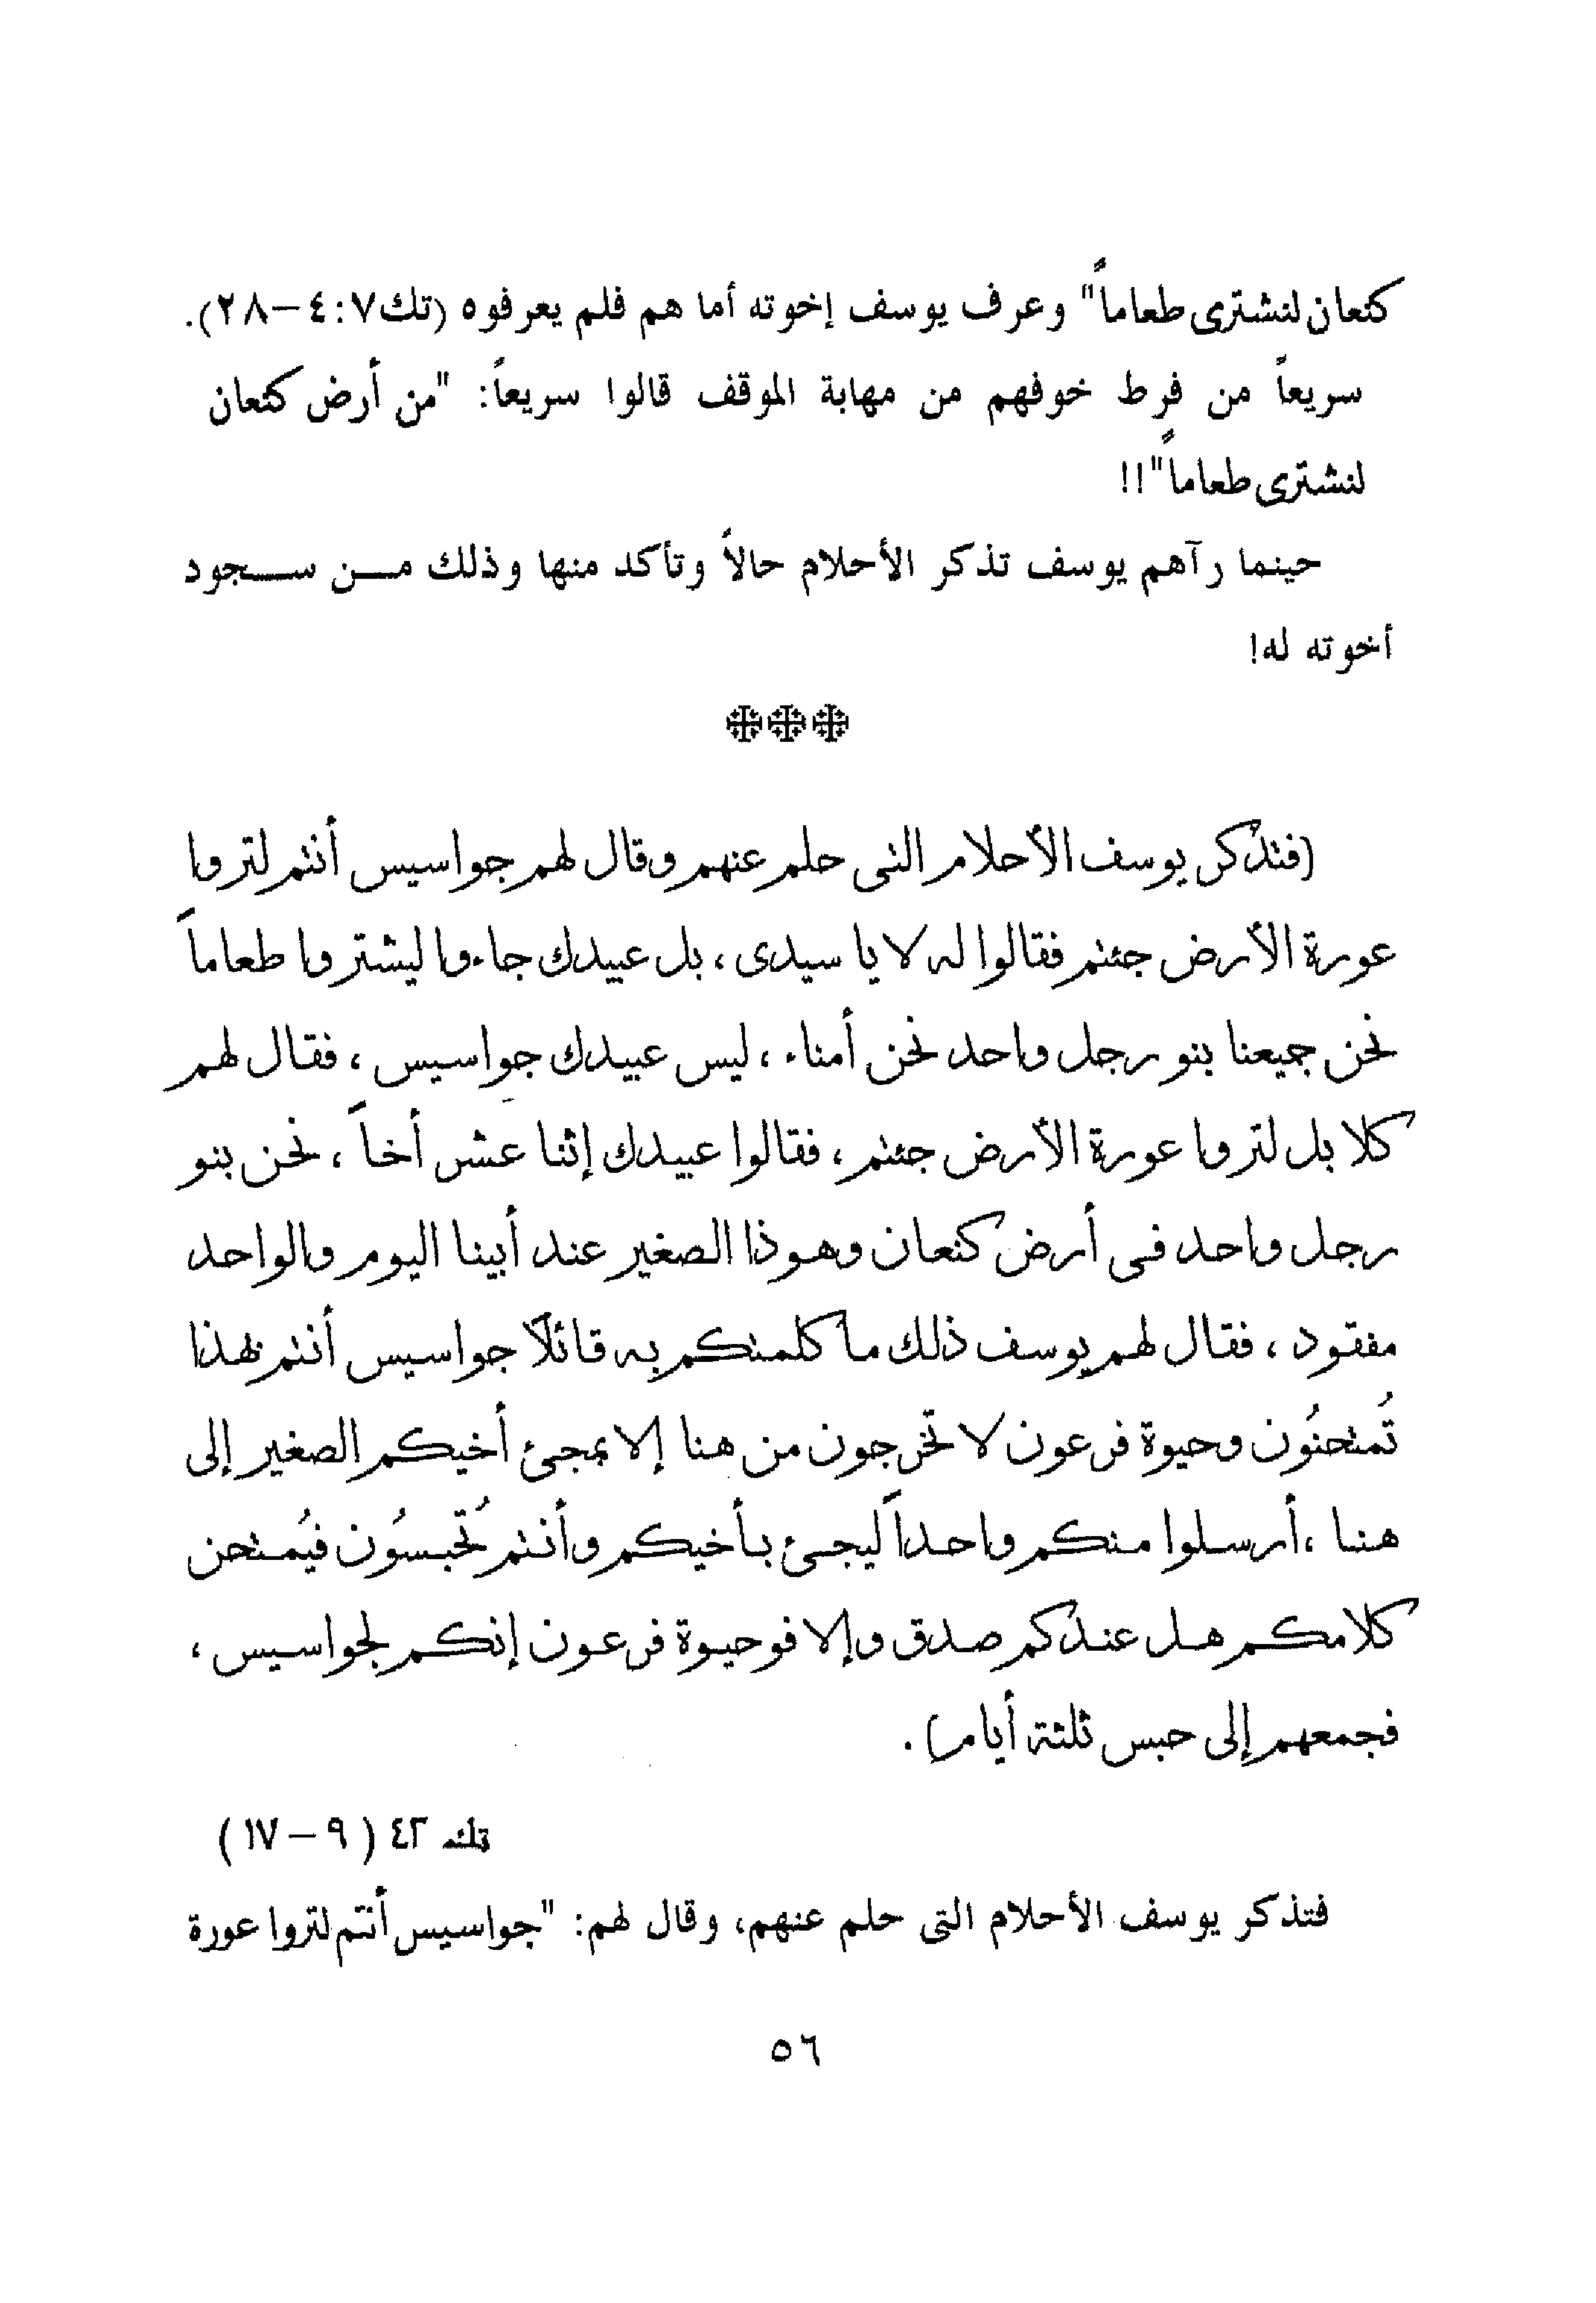 كنعان لنشترى طعاماً" وعرف يوسف إخوته أما هم فلم يعرفوه (تك٧:٤–٢٨).
سريعاً من فرط خوفهم من مهابة الموقف قالوا سريعاً: "من أرض كنعان
لنشترى طعاماً"!!
حينما رآهم يوسف تذكر الأحلام حالاً وتأكد منها وذلك مـــن ســـجود
أخوته له!
(فتذكر يوسف الأحلام التى حلم عنهم وقال لهم جواسيس أنتم لتروا
عورة الأرض جئتم فقالوا له لا يا سيدى، بل عبيدك جاءوا ليشتروا طعاماً
نحن جميعنا بنو رجل واحد نحن أمناء، ليس عبيدك جواسيس، فقال لهم
كلا بل لتروا عورة الأرض جئتم، فقالوا عبيدك إثنا عشر أخاً، نحن بنو
رجل واحد فى أرض كنعان وهوذا الصغير عند أبينا اليوم والواحد
مفقود، فقال لهم يوسف ذلك ما كلمتكم به قائلاً جواسيس أنتم بهذا
تُمتحنُون وحيوة فرعون لا تخرجون من هنا إلا بمجئ أخيكم الصغير إلى
هنا، أرسلوا منكم واحداً ليجئ بأخيكم وأنتم تُحبسُون فيُمتحن
كلامكم هل عندكم صدق وإلا فوحيوة فرعون إنكم لجواسيس،
فجمعهم إلى حبس ثلثة أيام).
تك ٤٢ ( ٩ – ١٧ )
فتذكر يوسف الأحلام التى حلم عنهم، وقال لهم: "جواسيس أنتم لتروا عورة
٥٦